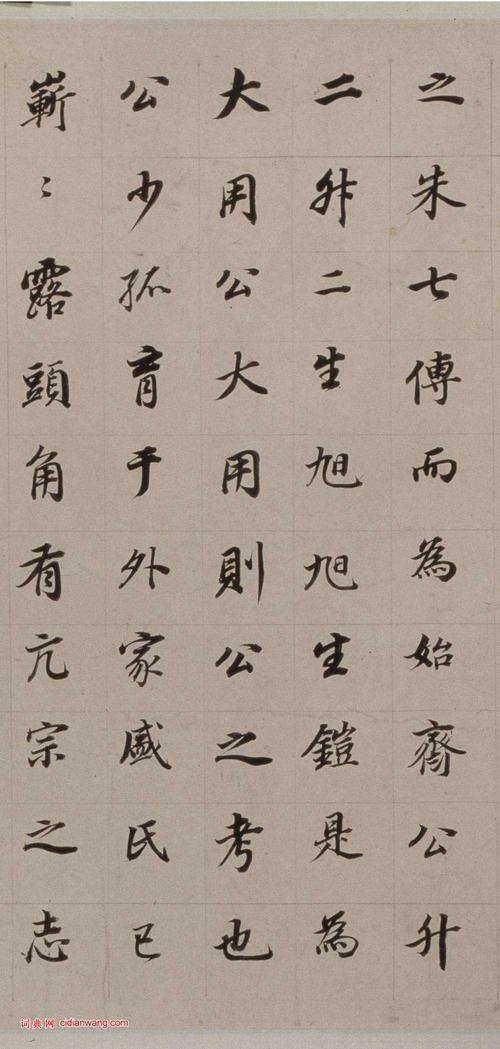 之朱七傳而為始齊公升
二升二生旭旭生鎧是為
大用公大用則公之考也
公少孤育于外家戚氏已
嶄〻露頭角有亢宗之志
词典网 cidianwang.com